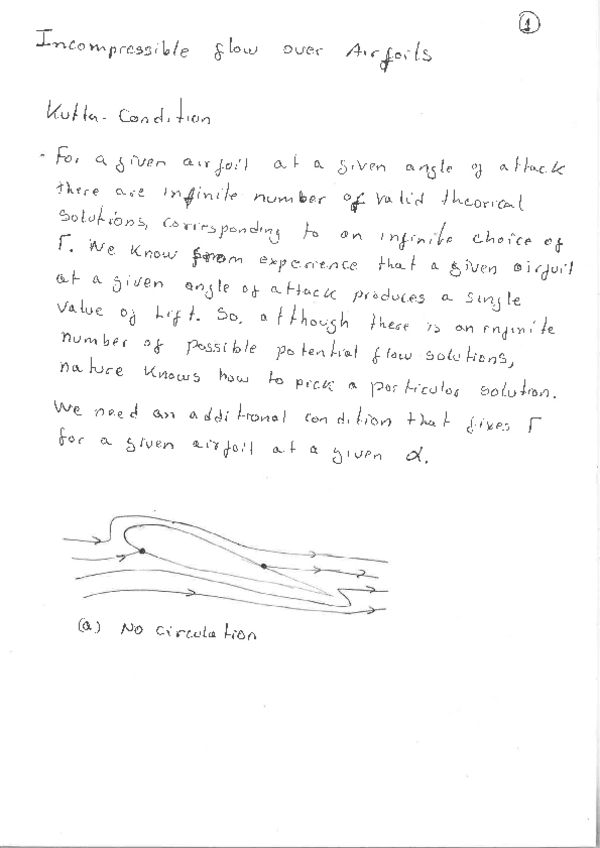 1
Incompressible flow over Airfoils
Kutta-Condition
- For a given airfoil at a given angle of attack
there are infinite number of valid theorical
solutions, corresponding to an infinite choice of
Γ. We know from experience that a given airfoil
at a given angle of attack produces a single
value of Lift. So, although there is an infinite
number of possible potential flow solutions,
nature knows how to pick a particular solution.
We need an additional condition that fixes Γ
for a given airfoil at a given α.
(a) No circulation